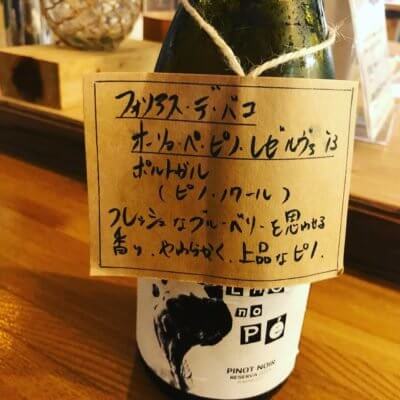 フォリアス・デ・バコ
オーリョ・ペ・ピノ・レゼルヴァ '13
ポルトガル
(ピノ・ノワール)
フレッシュなブルーベリーを思わせる
香り、やわらかく、上品なピノ.
no
PÓ
PINOT NOIR
RESERVA